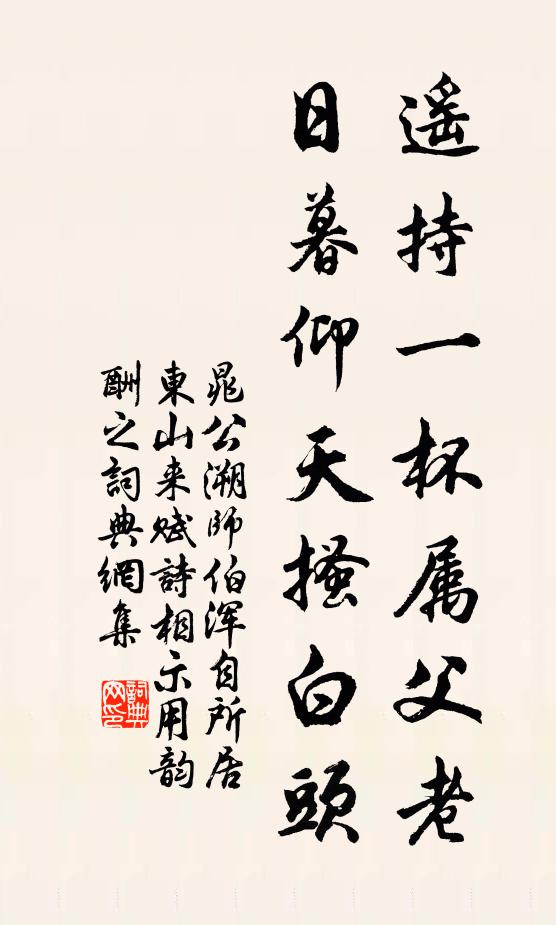 遥持一杯属父老
日暮仰天搔白頭
晁公溯師伯浑自所居
東山来赋詩相示用韵
酬之詞典網集
詞典网印